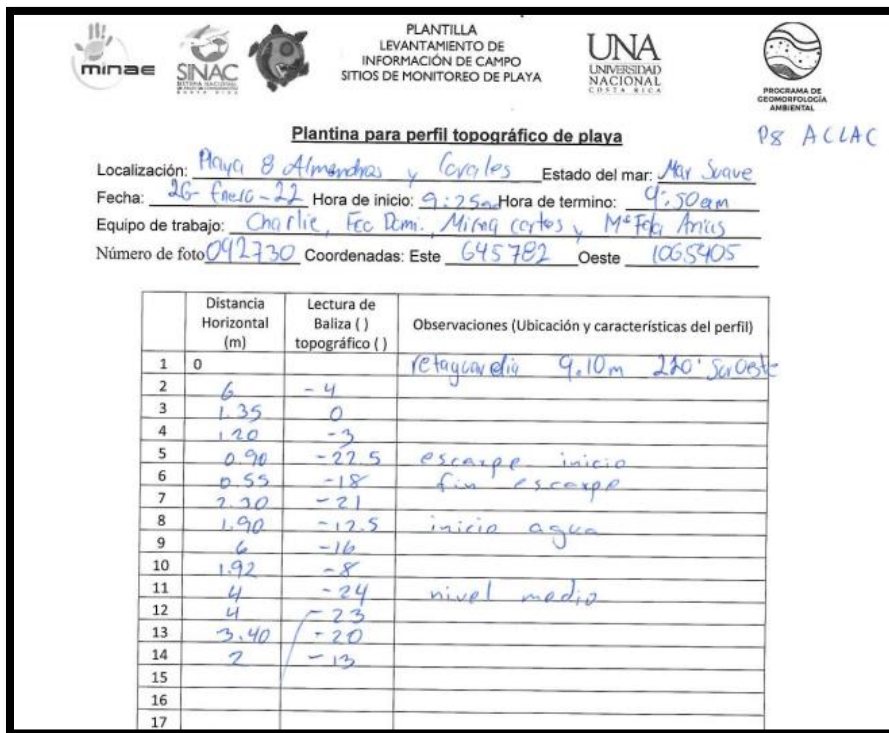 minae
SINAC
PLANTILLA
LEVANTAMIENTO DE
INFORMACIÓN DE CAMPO
SITIOS DE MONITOREO DE PLAYA
UNA
UNIVERSIDAD
NACIONAL
COSTA RICA
PROGRAMA DE
GEOMORFOLOGÍA
AMBIENTAL
Plantina para perfil topográfico de playa
P8 ACLAC
Localización: Playa 8 Almendros y Corales Estado del mar: Mar Suave
Fecha: 26-Enero-22 Hora de inicio: 9:25am Hora de termino: 9:50am
Equipo de trabajo: Charlie, Fco Domi., Mirna cortes y Mª Arias
Número de foto 092730 Coordenadas: Este 645782 Oeste 1065405
Distancia Horizontal (m) Lectura de Baliza ( ) topográfico ( ) Observaciones (Ubicación y características del perfil)
1 0 retaguardia 9.10m 220° SurOeste
2 6 -4
3 1.35 0
4 1.20 -3
5 0.90 -22.5 escarpe inicio
6 0.55 -18 fin escarpe
7 2.30 -21
8 1.90 -12.5 inicio agua
9 6 -16
10 1.92 -8
11 4 -24 nivel medio
12 4 -23
13 3.40 -20
14 2 -13
15
16
17